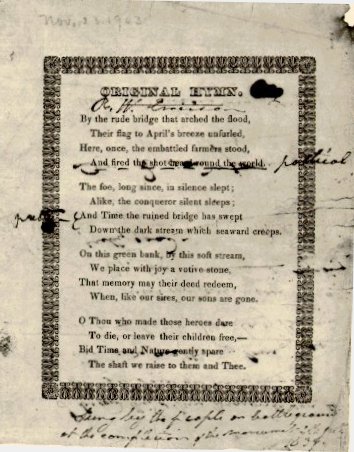 Nov. 23. 1903
ORIGINAL HYMN.
R. W. Emerson
By the rude bridge that arched the flood,
Their flag to April's breeze unfurled,
Here, once, the embattled farmers stood,
And fired the shot heard round the world.
The foe, long since, in silence slept;
Alike, the conqueror silent sleeps;
And Time the ruined bridge has swept
Down the dark stream which seaward creeps.
On this green bank, by this soft stream,
We place with joy a votive stone,
That memory may their deed redeem,
When, like our sires, our sons are gone.
O Thou who made those heroes dare
To die, or leave their children free,—
Bid Time and Nature gently spare
The shaft we raise to them and Thee.
Sung by the people on battle ground
at the completion of the monument